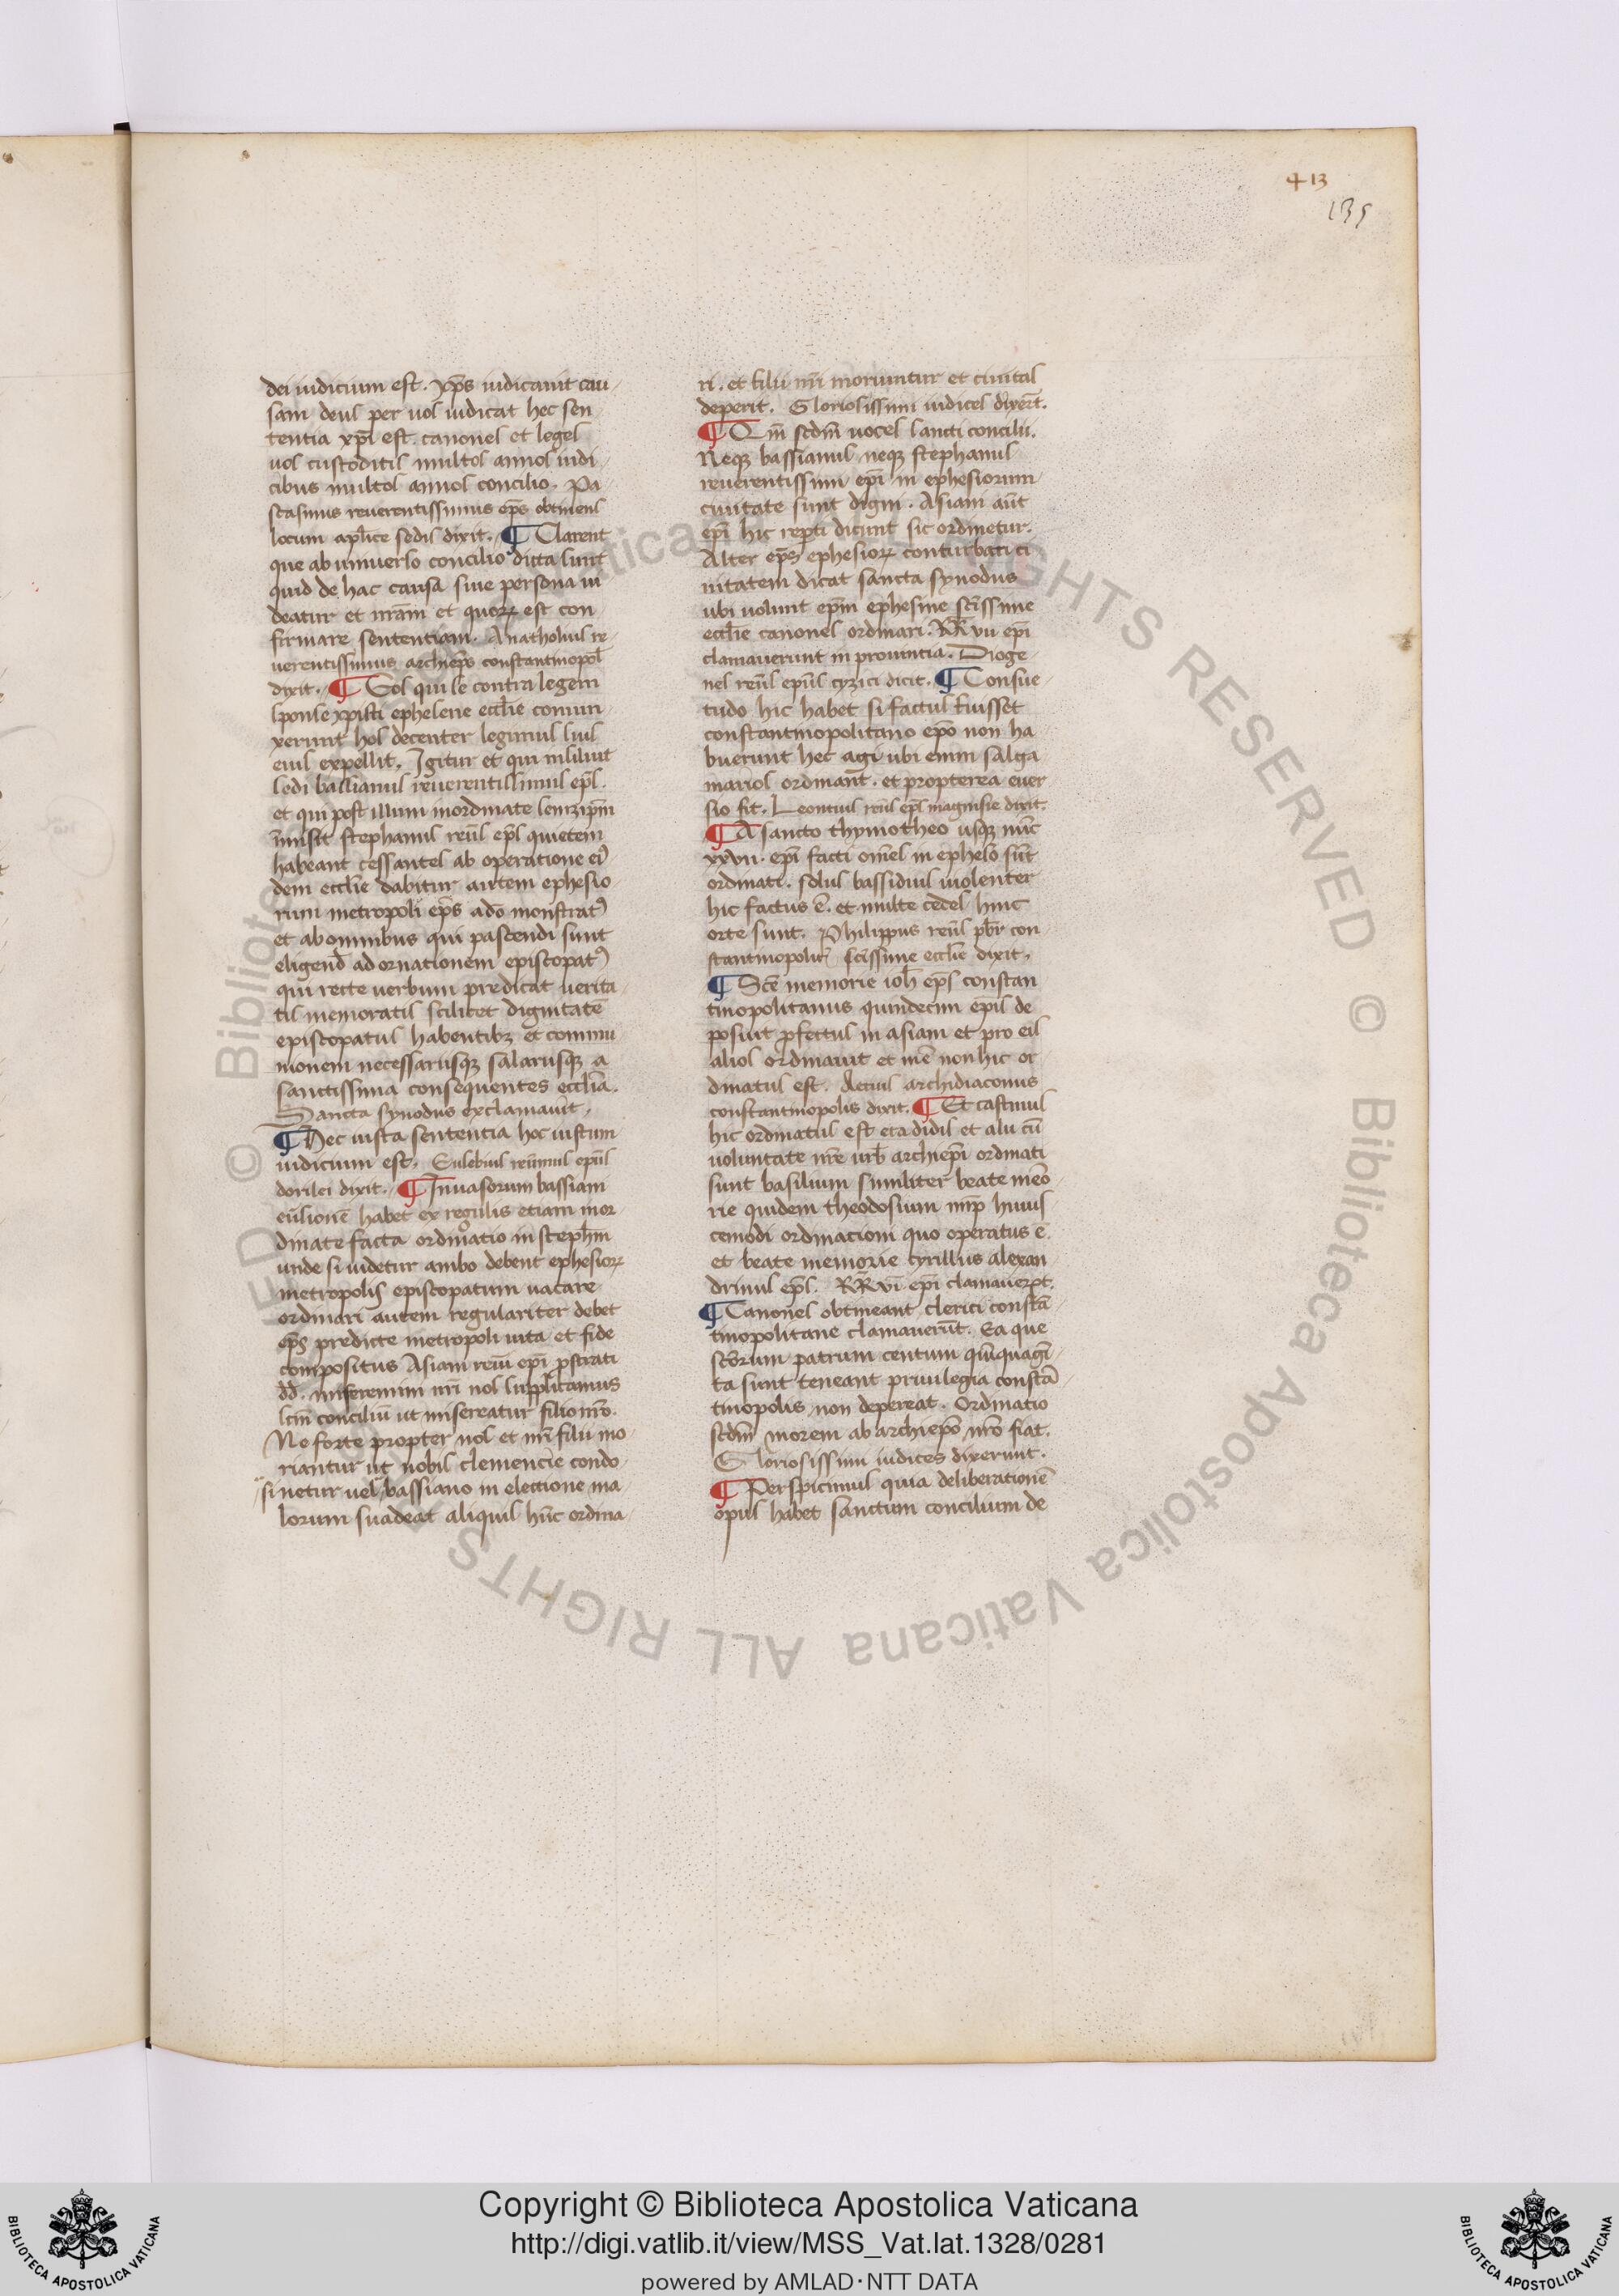 413
135
dei iudicium est. xp̄s iudicauit cau-
sam deus per uos iudicat hec sen-
tentia xp̄i est. canones et leges
uos custoditis multos annos iudi-
cibus multos annos concilio. Pa-
scasinus reuerentissimus ep̄s obtinens
locum ap̄lice sedis dixit. ¶ Clarent
que ab uniuerso concilio dicta sunt
quid de hac causa siue persona ui
deatur et nr̄am et quorꝝ est con
firmare sententiam. Anatholius re-
uerentissimus archiep̄s constantinopol̄
dixit. ¶ Sol qui se contra legem
sponse xpisti ephesene eccl̄ie coniun
xerunt hos decenter legimus suis
eius expellit. Igitur et qui insiluit
sedi bassianus reuerentissimus ep̄s.
et qui post illum inordinate semzip̄m
īmisit stephanus reūs ep̄s quietem
habeant cessantes ab operatione eiꝰ
dem eccl̄ie dabitur autem ephesio-
rum metropoli ep̄s ado monstratꝰ
et ab omnibus qui pascendi sunt
eligend̄ ad ornationem episcopatꝰ
qui recte uerbum predicat uerita-
tis memoratis scilicet dignitatē
episcopatus habentibꝫ et commu
nionem necessarusqꝫ salarusqꝫ a
sanctissima consequentes eccl̄ia.
Sancta synodus exclamauit.
¶ Hec iusta sententia hoc iustum
iudicium est. Eusebius reūmus epūs
dorilei dixit. ¶ Inuasorum bassiam
eūsionē habet ex regulis etiam inor-
dinate facta ordinatio in steph̄m
unde si uidetur ambo debent ephesiorꝝ
metropolis episcopatum uacare
ordinari autem regulariter debet
ep̄s predicte metropoli uita et fide
compositus Asiam reūi ep̄i ꝓstrati
dd̄. miseremini nr̄i nos supplicamus
scm̄ conciliū ut misereatur filio nr̄o.
Ne forte propter nos et nr̄i filii mo-
riantur ut nobis clemencie condo-
sinetur uel bassiano in electione ma-
lorum suadeat aliquis hūc ordina-
ri. et filii nr̄i moriuntur et ciuitas
deperit. Gloriosissimi iudices dixert̄.
¶ Qm̄ scd̄m uoces sancti concilii.
Neqꝫ bassianus neqꝫ stephanus
reuerentissimi ep̄i in ephesiorum
ciuitate sunt digni. Asiam aūt
ep̄i hic rep̄ti dicunt sic ordinetur.
Alter ep̄s ephesiorꝝ conturbati ci
uitatem dicat sancta synodus
ubi uolunt ep̄m ephesine sc̄issime
eccl̄ie canones ordinari. RR̄ uii ep̄i
clamauerunt in prouintia. Dioge-
nes reūs epūs cyzici dicit. ¶ Consue-
tudo hic habet si factus fuisset
constantinopolitano ep̄o non ha
buerunt hec agi ubi enim salga
marios ordinant̄. et propterea euer
sio fit. Leontius reūs ep̄s magnisie dixit.
¶ A sancto thymotheo usqꝫ nūc
xxvii. ep̄i facti om̄es in epheso sūt
ordinati. solus bassidius uiolenter
hic factus ē. et multe cedes hinc
orte sunt. Philippus reūs pb̄r con-
stantinopolitꝰ sc̄issime eccl̄ie dixit.
¶ Scē memorie ioh̄ ep̄s constan
tinopolitanus quindecim ep̄is de
posuit ꝓfectus in asiam et pro eis
alios ordinauit et mē non hic or
dinatus est. Aetius archidiaconus
constantinopolis dixit. ¶ Et castinus
hic ordinatus est eradidis et alii cū
uoluntate nr̄e urb̄ archiep̄i ordinati
sunt basilium similiter beate memo-
rie quidem theodosium imp̄ huius
cemodi ordinacioni quo operatus ē.
et beate memorie cyrillus alexan
drinus ep̄s. RR̄ ui ep̄i clamauerūt.
¶ Canones obtineant clerici constā-
tinopolitane clamauerūt. Ea que
sc̄orum patrum centum qūiquagi-
ta sunt teneant priuilegia constā-
tinopolis non depereat. Ordinatio
scd̄m morem ab archiep̄o nr̄o fiat.
Gloriosissimi iudices dixerunt.
¶ Perspicimus quia deliberationē
opus habet sanctum concilium de
Copyright © Biblioteca Apostolica Vaticana
http://digi.vatlib.it/view/MSS_Vat.lat.1328/0281
powered by AMLAD·NTT DATA
BIBLIOTECA APOSTOLICA VATICANA
BIBLIOTECA APOSTOLICA VATICANA
© Biblioteca Apostolica Vaticana ALL RIGHTS RESERVED